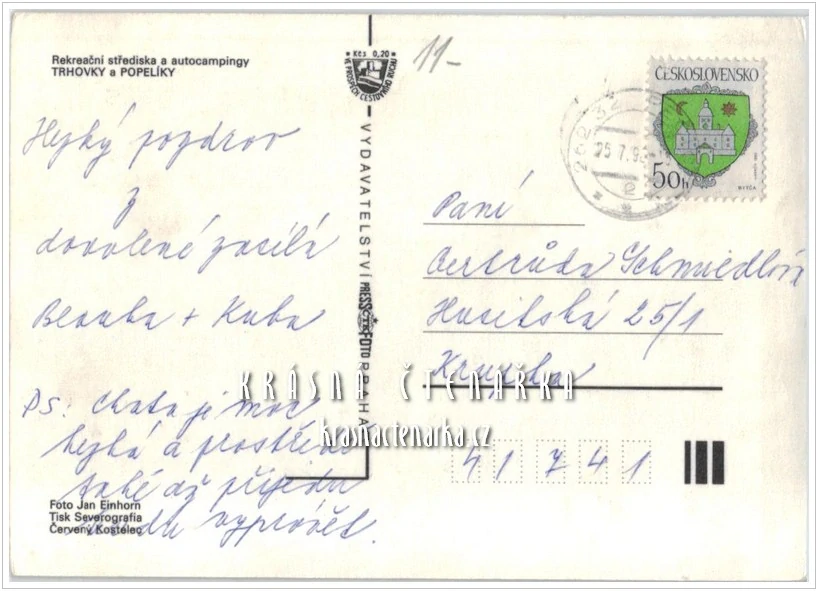 Rekreační střediska a autocampingy
TRHOVKY a POPELÍKY
Hezký pozdrav
z
dovolené zasílá
Blanka + Kuba
PS: Chata je moc
hezká a prostředí
také až přijedu
budu vyprávět.
Foto Jan Einhorn
Tisk Severografia
Červený Kostelec
Kčs 0,20
VE PROSPĚCH CESTOVNÍHO RUCHU
VYDAVATELSTVÍ PRESSFOTO PRAHA
ČTK
11-
262 34
25.7.9
e
ČESKOSLOVENSKO
50h
BYTČA
Paní
Gertrůda Schmiedlová
Husitská 25/1
Krupka
41741
KRÁSNÁ ČTENÁŘKA
krasnactenarka.cz